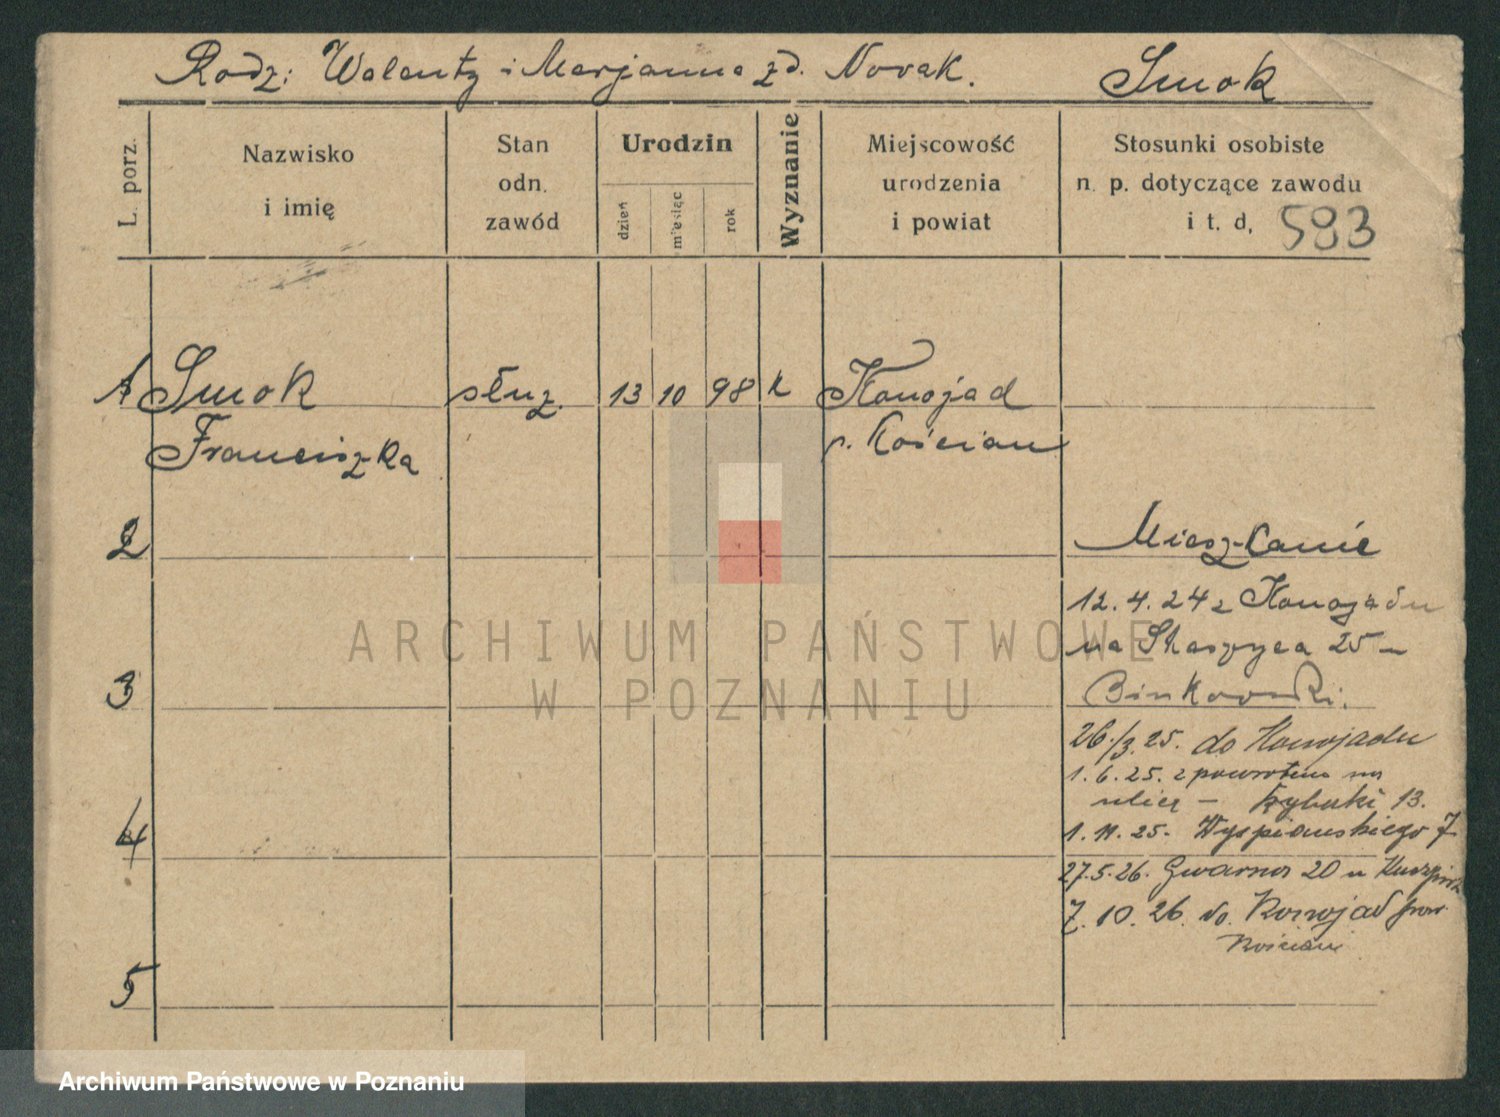 Rodz: Walenty i Marjanna zd. Novak. Smok
L. porz.
Nazwisko
i imię
Stan
odn.
zawód
Urodzin
dzień
miesiąc
rok
Wyznanie
Miejscowość
urodzenia
i powiat
Stosunki osobiste
n. p. dotyczące zawodu
i t. d. 593
1 Smok służ. 13 10 98 k Konojad
Franciszka p. Kościan
2
Mieszkanie
12.4.24 z Konojadu
na 25 -
3
Binkowski.
26./3.25. do Konojadu
1.6.25. z powrotem na
ulicę - Rybaki 13.
4
1.11.25. Wyspiańskiego 7
27.5.26. Gwarna 20 u
7.10.26. do. Konojad pow.
Kościan
5
ARCHIWUM PAŃSTWOWE
W POZNANIU
Archiwum Państwowe w Poznaniu